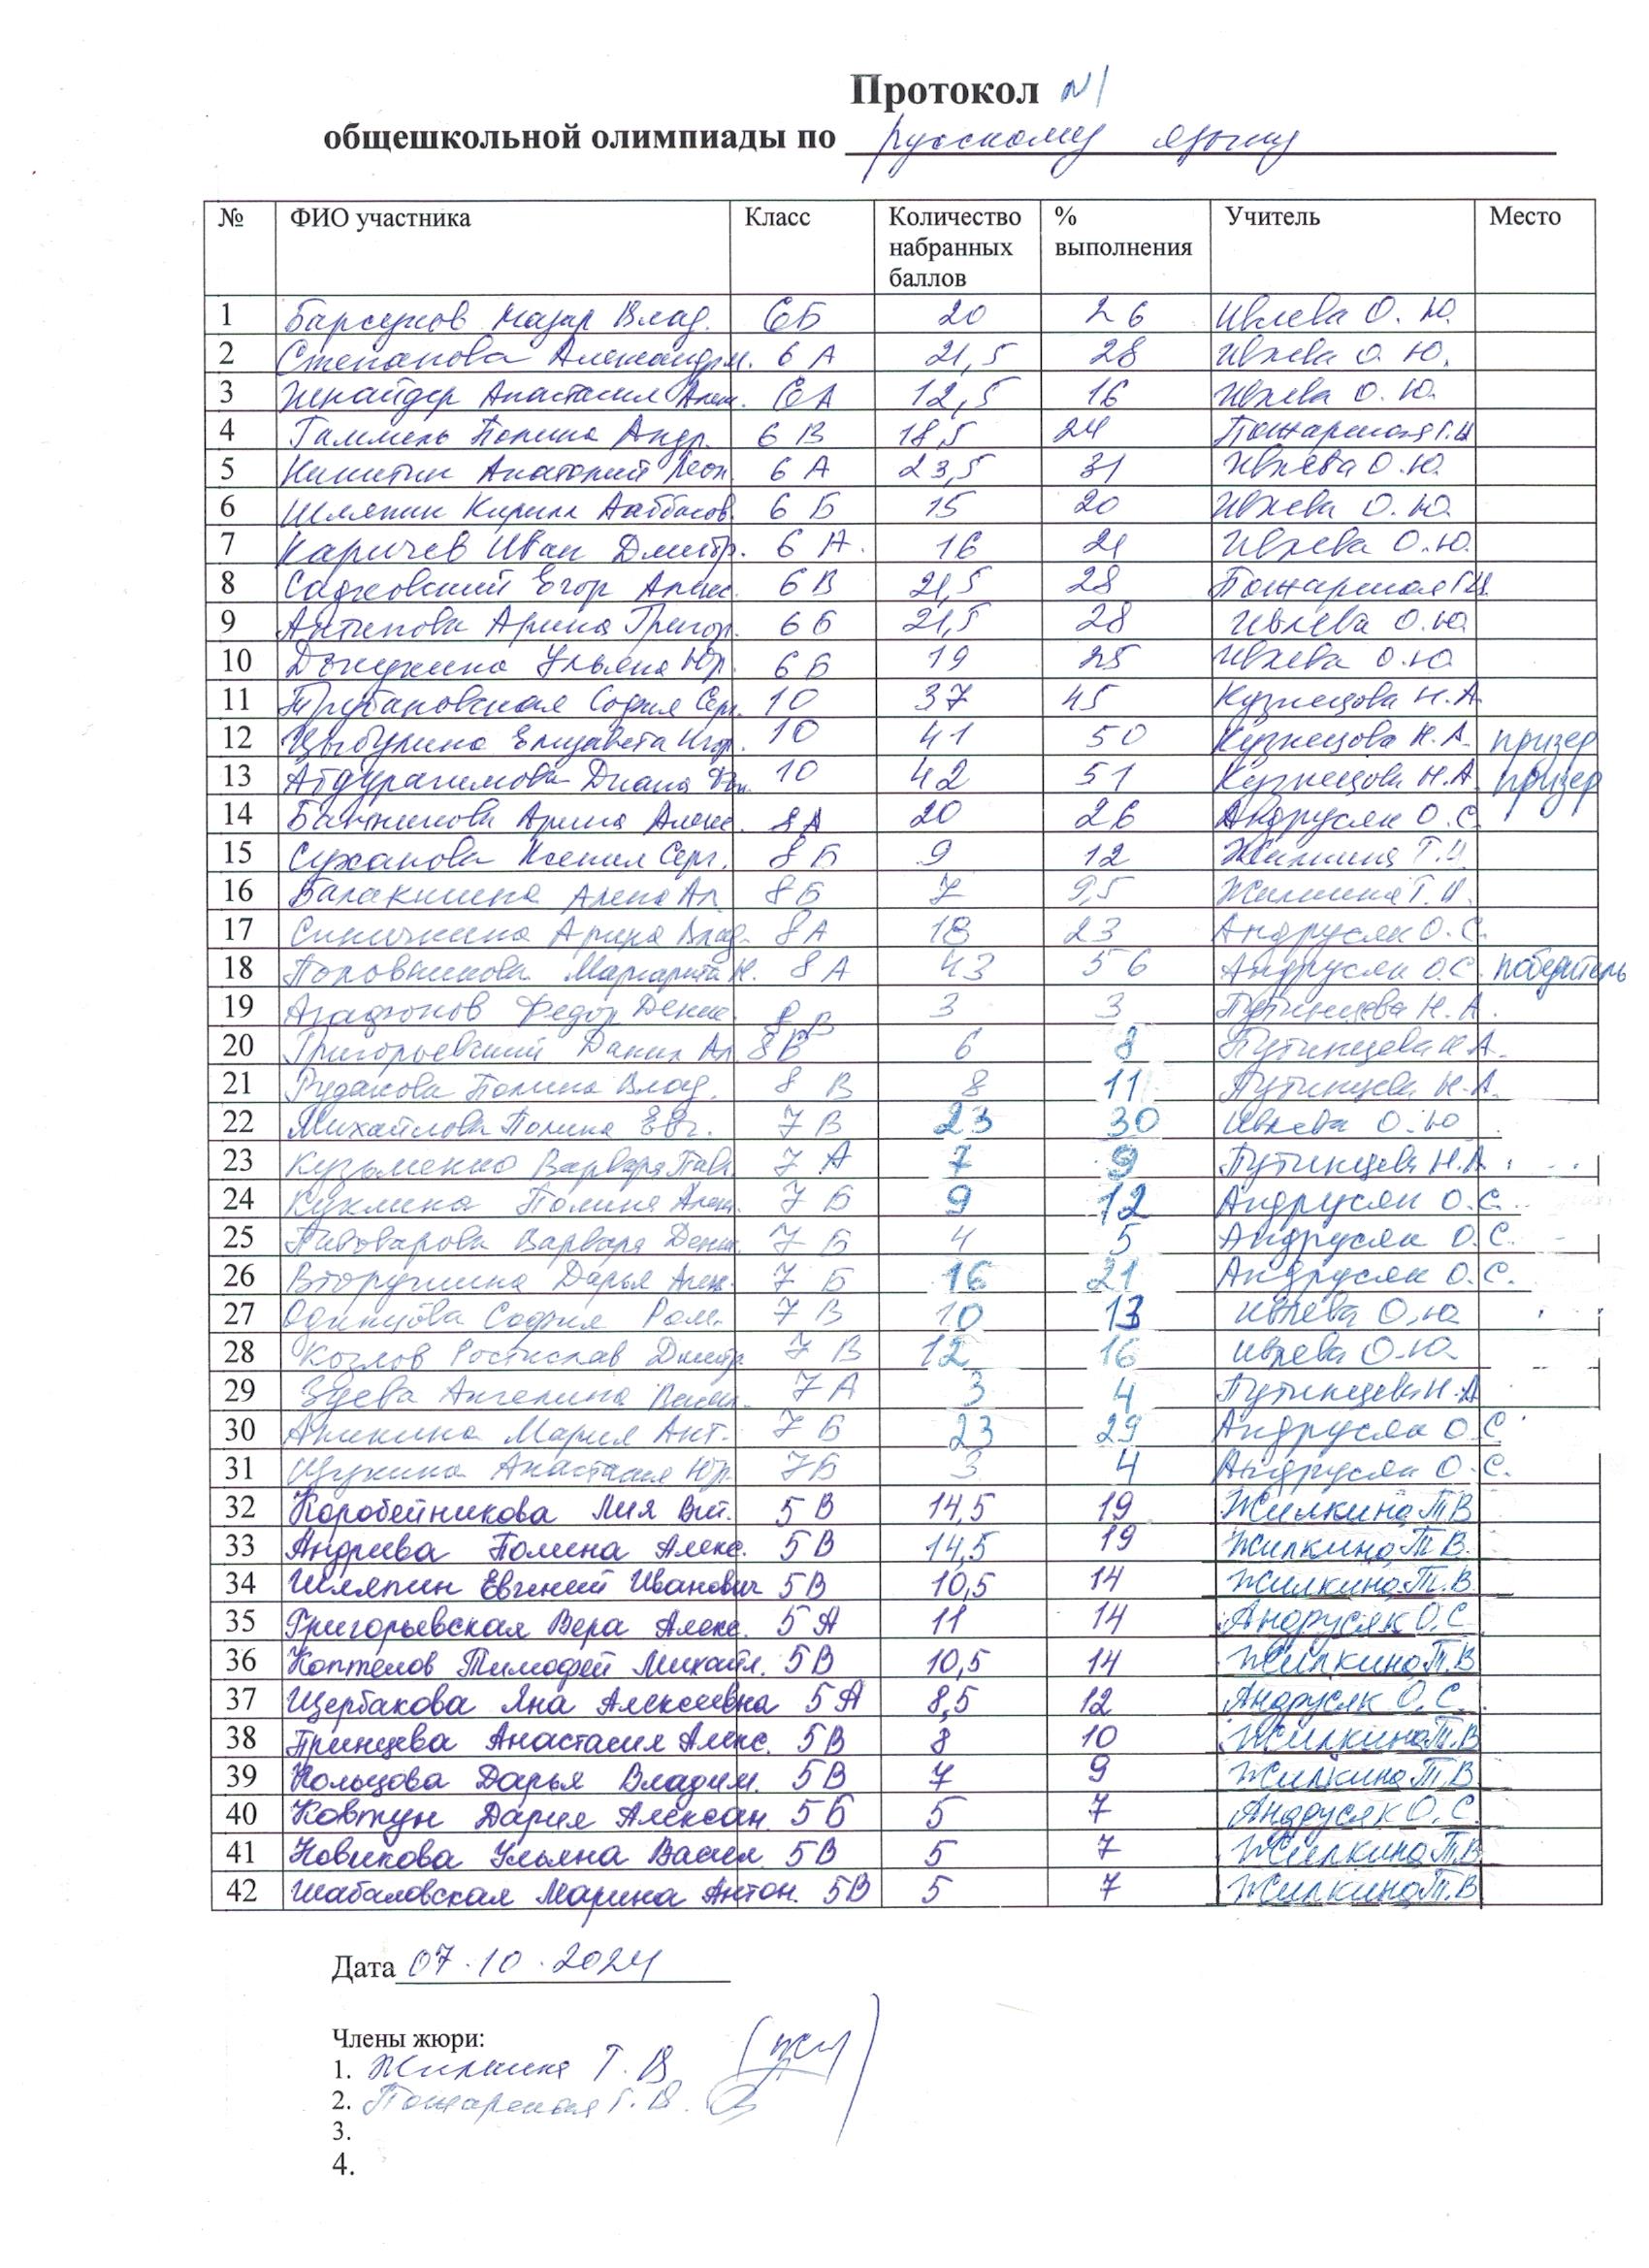 Протокол №1
общешкольной олимпиады по русскому языку
№ ФИО участника Класс Количество набранных баллов % выполнения Учитель Место
1 Барсуков Назар Влад. 6Б 20 26 Ивлева О. Ю.
2 Степанова Александр. 6 А 21,5 28 Ивлева О. Ю.
3 Шнайдер Анастасия Алек. 6А 12,5 16 Ивлева О. Ю.
4 Гаммель Полина Андр. 6 В 18,5 24 Пожарская
5 Никитин Анатолий Леон. 6 А 23,5 31 Ивлева О.Ю.
6 Шляпин Кирилл 6 Б 15 20 Ивлева О. Ю.
7 Каричев Иван Дмитр. 6 А. 16 21 Ивлева О.Ю.
8 Садковский Егор Алекс. 6 В 21,5 28 Пожарская
9 Антипова Арина Григор. 6 Б 21,5 28 Ивлева О.Ю.
10 Ульяна Юр. 6 Б 19 25 Ивлева О.Ю.
11 София Серг. 10 37 45 Кузнецова Н.А.
12 Цыбулина Елизавета Игор. 10 41 50 Кузнецова Н.А. призер
13 Абдурагимова Диана 10 42 51 Кузнецова Н.А. призер
14 Арина Алекс. 8А 20 26 Андрусяк О.С.
15 Суханова Ксения Серг. 8 Б 9 12
16 Балакшина Алена Ал. 8Б 7 9,5
17 Синичкина Арина Влад. 8А 18 23 Андрусяк О.С.
18 Половникова Маргарита Н. 8 А 43 56 Андрусяк О.С. победитель
19 Агафонов Федор Денис. 8 В 3 3 Путинцева Н.А.
20 Григорьевский Данил Ал. 8В 6 8 Путинцева Н.А.
21 Рудакова Полина Влад. 8 В 8 11 Путинцева Н.А.
22 Михайлова Полина Евг. 7 В 23 30 Ивлева О.Ю
23 Кузьменко Варвара Пав. 7 А 7 9 Путинцева Н.А.
24 Куклина Полина Алек. 7 Б 9 12 Андрусяк О.С.
25 Пивоварова Варвара Денис. 7 Б 4 5 Андрусяк О.С.
26 Вторушина Дарья Алек. 7 Б 16 21 Андрусяк О.С.
27 Одинцова София Ром. 7 В 10 13 Ивлева О.Ю
28 Козлов Ростислав Дмитр 7 В 12 16 Ивлева О.Ю
29 Зуева Ангелина Васил. 7А 3 4 Путинцева Н.А
30 Аникина Мария Ант. 7 Б 23 29 Андрусяк О.С
31 Щукина Анастасия Юр. 7Б 3 4 Андрусяк О.С.
32 Коробейникова Лия Вит. 5 В 14,5 19 Жилкина Т.В
33 Андреева Полина Алекс. 5 В 14,5 19 Жилкина Т.В.
34 Шляпин Евгений Иванович 5В 10,5 14 Жилкина Т.В.
35 Григорьевская Вера Алекс. 5 А 11 14 Андрусяк О.С
36 Коптелов Тимофей Михайл. 5В 10,5 14 Жилкина Т.В
37 Щербакова Яна Алексеевна 5 А 8,5 12 Андрусяк О.С.
38 Принцева Анастасия Алекс. 5В 8 10 Жилкина Т.В
39 Кольцова Дарья Владим. 5В 7 9 Жилкина Т.В
40 Ковтун Дария Алексан. 5 Б 5 7 Андрусяк О.С
41 Новикова Ульяна Васил. 5В 5 7 Жилкина Т.В
42 Шабаловская Марина Антон. 5В 5 7 Жилкина Т.В
Дата 07.10.2024
Члены жюри:
1. Жилкина Т.В
2. Пожарская Г.В.
3.
4.